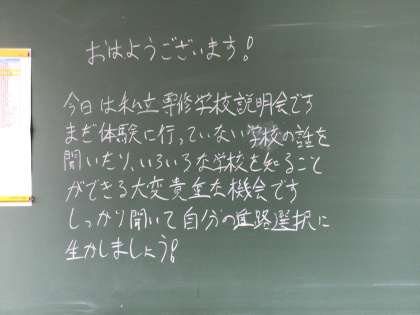 おはようございます!
今日は私立専修学校説明会です
まだ体験に行っていない学校の話を
聞いたり、いろいろな学校を知ること
ができる大変貴重な機会です
しっかり聞いて自分の進路選択に
生かしましょう!